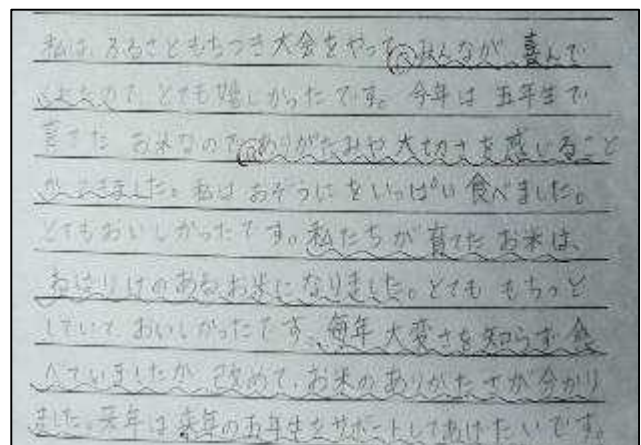 私は、ふるさともちつき大会をやって、みんなが喜んで
くれたので、とても嬉しかったです。今年は五年生で
育てたお米なので、ありがたみや大切さを感じること
ができました。私はおぞうにをいっぱい食べました。
とてもおいしかったです。私たちが育てたお米は、
ねばりけのあるお米になりました。とてももちっと
していておいしかったです。毎年大変さを知らず食
べていましたが、改めて、お米のありがたさが分かり
ました。来年は来年の五年生をサポートしてあげたいです。